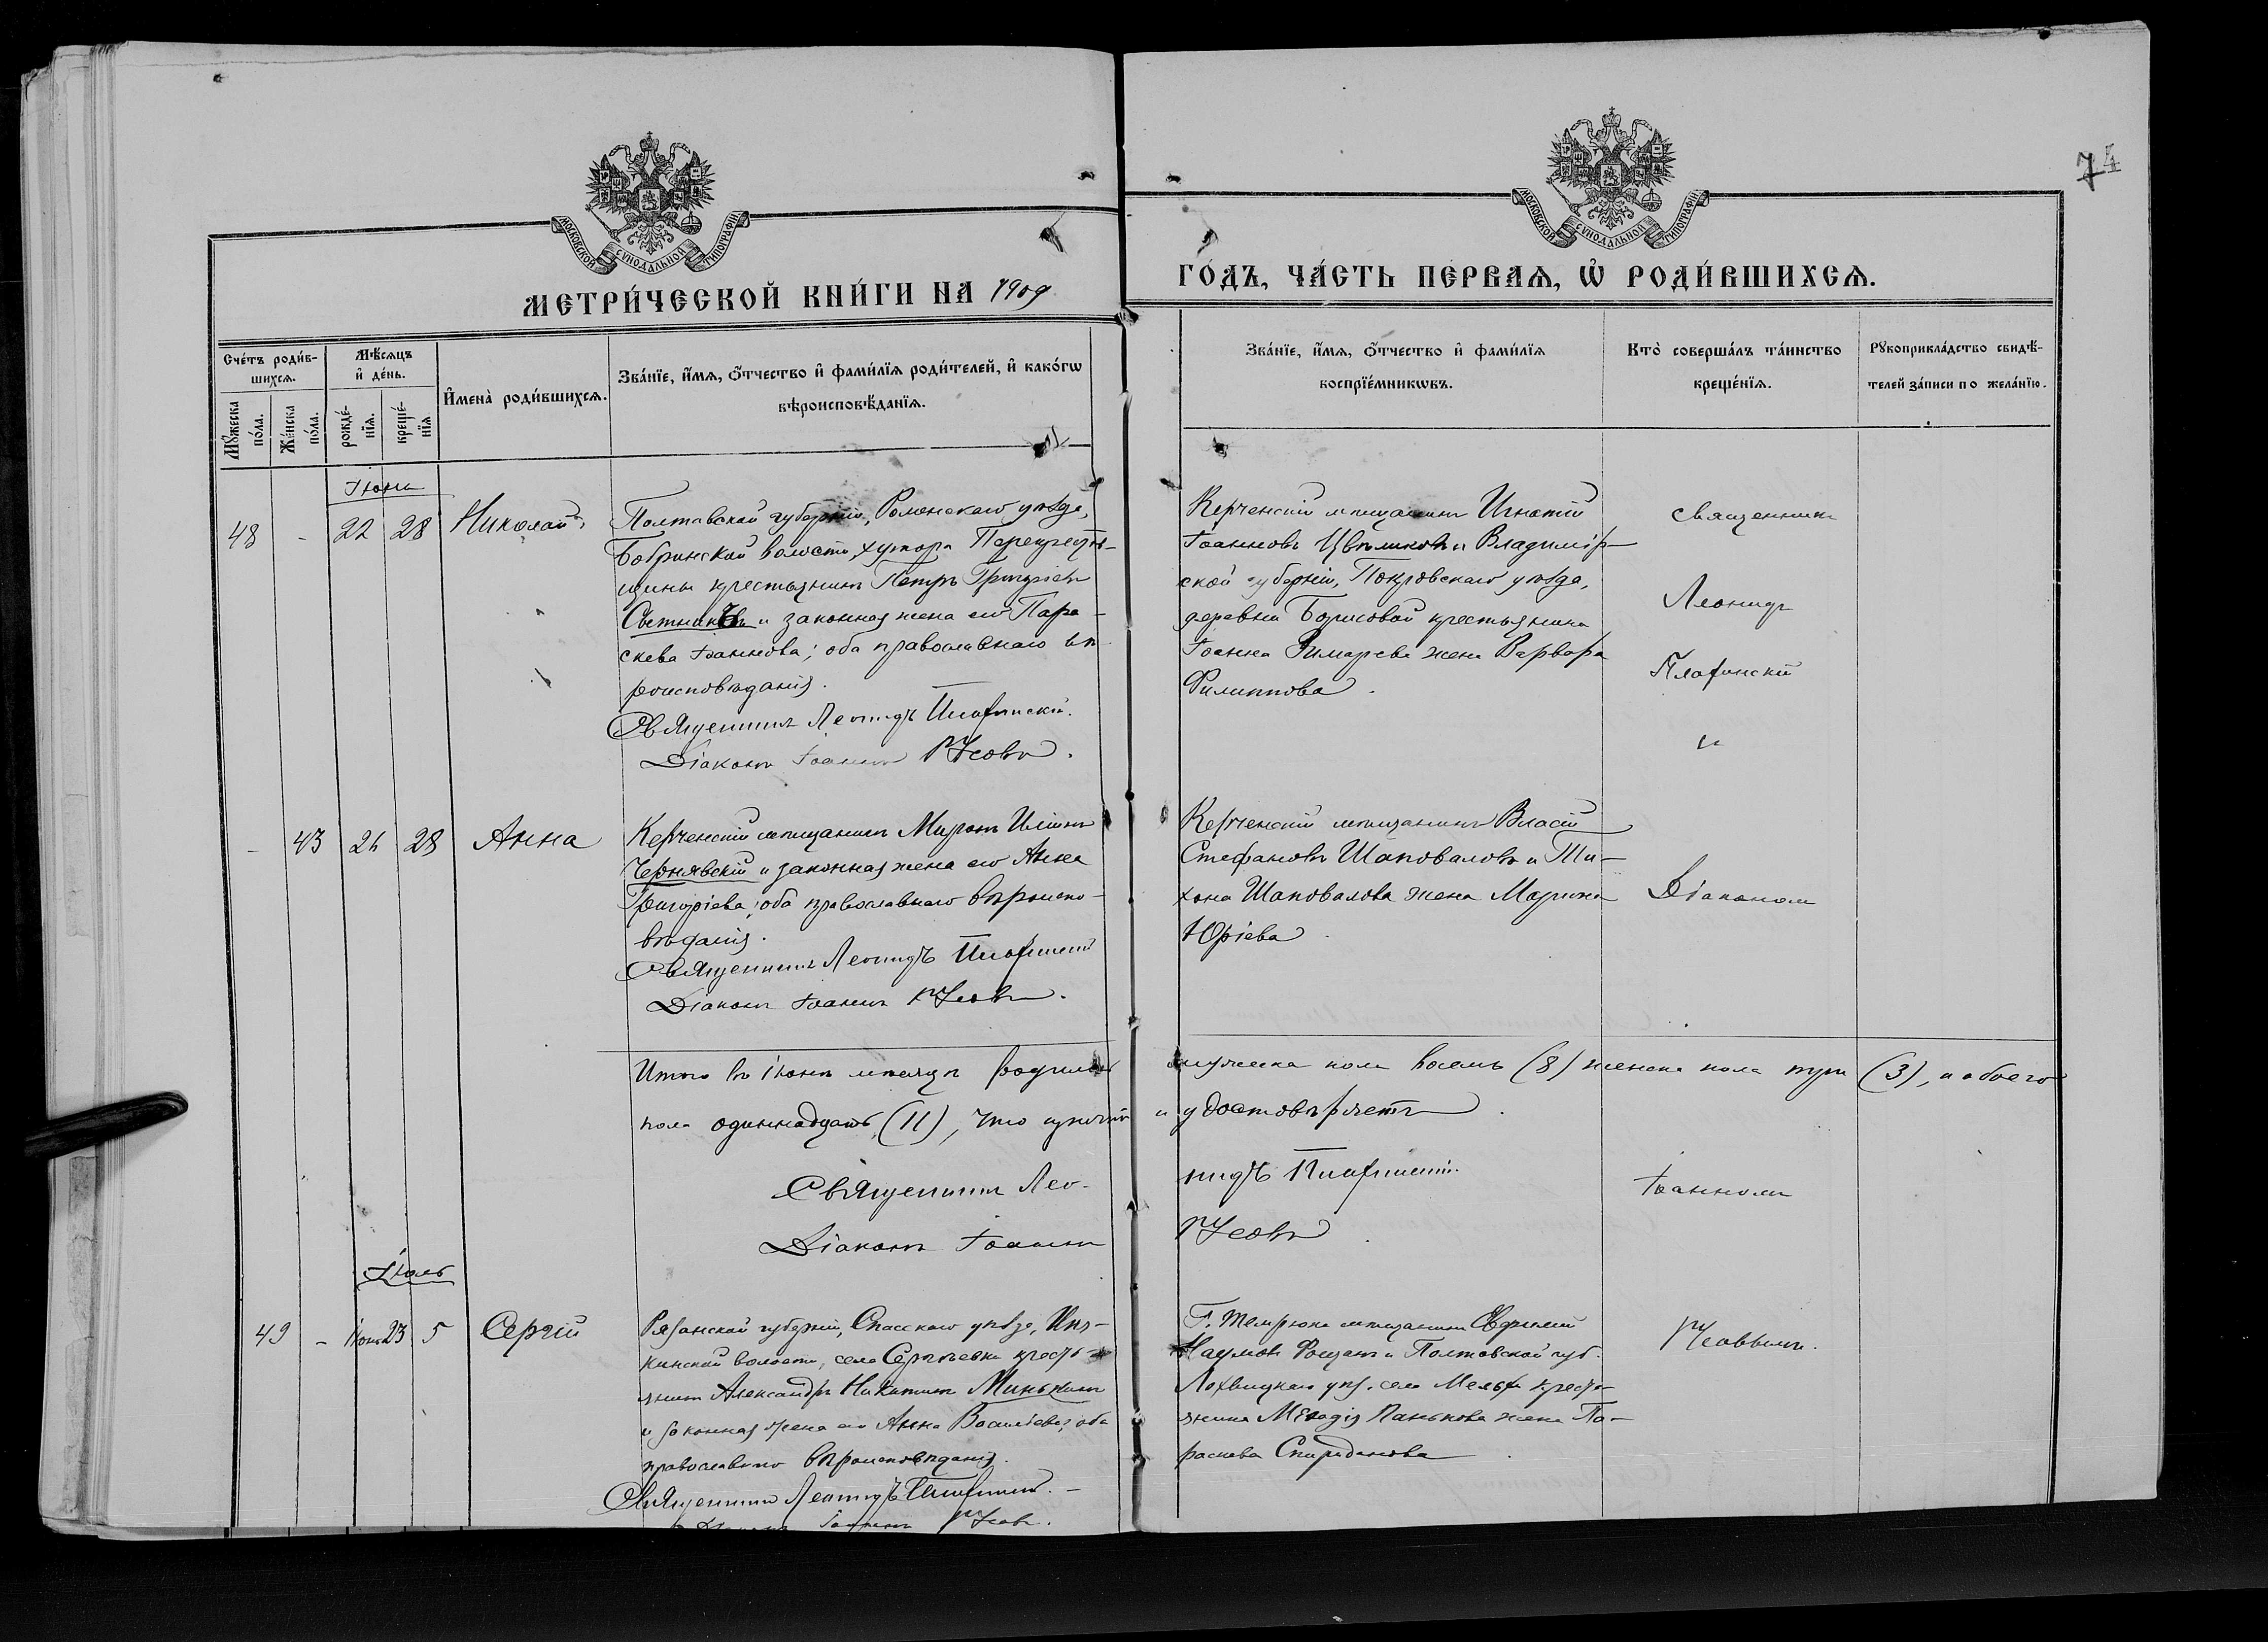 74
МОСКОВСКОЙ СѴНОДАЛЬНОЙ ТИПОГРАФІИ
МОСКОВСКОЙ СѴНОДАЛЬНОЙ ТИПОГРАФІИ
МЕТРИ́ЧЕСКОЙ КНИ́ГИ НА 1909
ГО́ДЪ, ЧА́СТЬ ПЕ́РВАЯ, Ѡ҆ РОДИ́ВШИХСѦ.
Сче́тъ роди́в-
шихсѧ.
Мꙋ́жеска по́ла.
Же́нска по́ла.
Мѣ́сѧцъ
и҆ де́нь.
рожде́-
нїѧ.
креще́-
нїѧ
И҆мена̀ роди́вшихсѧ.
Зва́нїе, и҆́мѧ, ѻ҆́тчество и҆ фами́лїѧ роди́телей, и҆ како́гѡ
вѣроисповѣ́данїѧ.
Зва́нїе, и҆́мѧ, ѻ҆́тчество и҆ фами́лїѧ
воспрїе́мникѡвъ.
Кто̀ соверша́лъ та́инство
креще́нїѧ.
Рꙋкоприкла́дство свидѣ́-
телей за́писи по жела́нїю.
Іюнь
48 - 22 28 Николай
Полтавской губерніи, Роменскаго уѣзда,
Бобринской волости, хутора
щины крестьянинъ Петръ Григоріевъ
и законная жена его Пара-
скева Іоаннова; оба православнаго вѣ-
роисповѣданія.
Священникъ Леонидъ
Діаконъ Іоаннъ Усовъ.
Керченскій мѣщанинъ Игнатій
Іоанновъ Цвѣликовъ и Владимір-
ской губерніи, Покровскаго уѣзда,
деревни Борисовой крестьянина
Іоанна жена Варвара
Филиппова.
священникъ
Леонидъ
и
- 43 26 28 Анна
Керченскій мѣщанинъ Миронъ Иліинъ
Чернявскій и законная жена его Анна
Григоріева; оба православнаго вѣроиспо-
вѣданія.
Священникъ Леонидъ
Діаконъ Іоаннъ Усовъ.
Керченскій мѣщанинъ Власій
Стефановъ Шаповаловъ и Ти-
хона Шаповалова жена Марина
Юріева.
Діакономъ
Итого въ іюнѣ мѣсяцѣ родилось мужеска пола восемь (8) женска пола три (3), и обоего
пола одиннадцать (11), что и удостовѣряетъ.
Священникъ Лео-
нидъ
Діаконъ Іоаннъ
Усовъ
Іоанномъ
Іюль
49 - Іюня 23 5 Сергій
Рязанской губерніи, Спасскаго уѣзда,
кинской волости, села Сергіевки кресть-
янинъ Александръ Никитинъ Минькинъ
и законная жена его Анна Васильева; оба
православнаго вѣроисповѣданія.
Священникъ Леонидъ
Діаконъ Іоаннъ Усовъ.
Г. Темрюка мѣщанинъ Евфимій
Наумовъ и Полтавской губ.
Лохвицкаго уѣз. села кресть-
янина Меѳодія Панькова жена Па-
раскева Спиридонова.
Усовымъ.